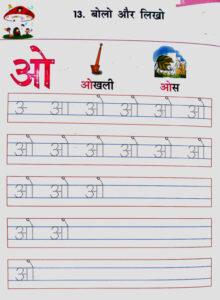 13. बोलो और लिखो
ओ
ओखली ओस
उ आ ओ ओ ओ ओ
ओ ओ ओ ओ ओ ओ
ओ ओ ओ
ओ ओ
ओ